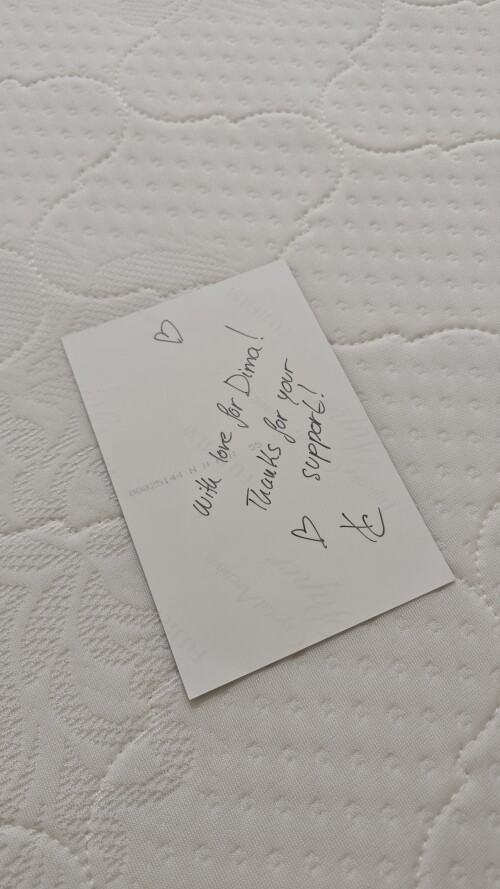 With love for Dima!
Thanks for your
support!